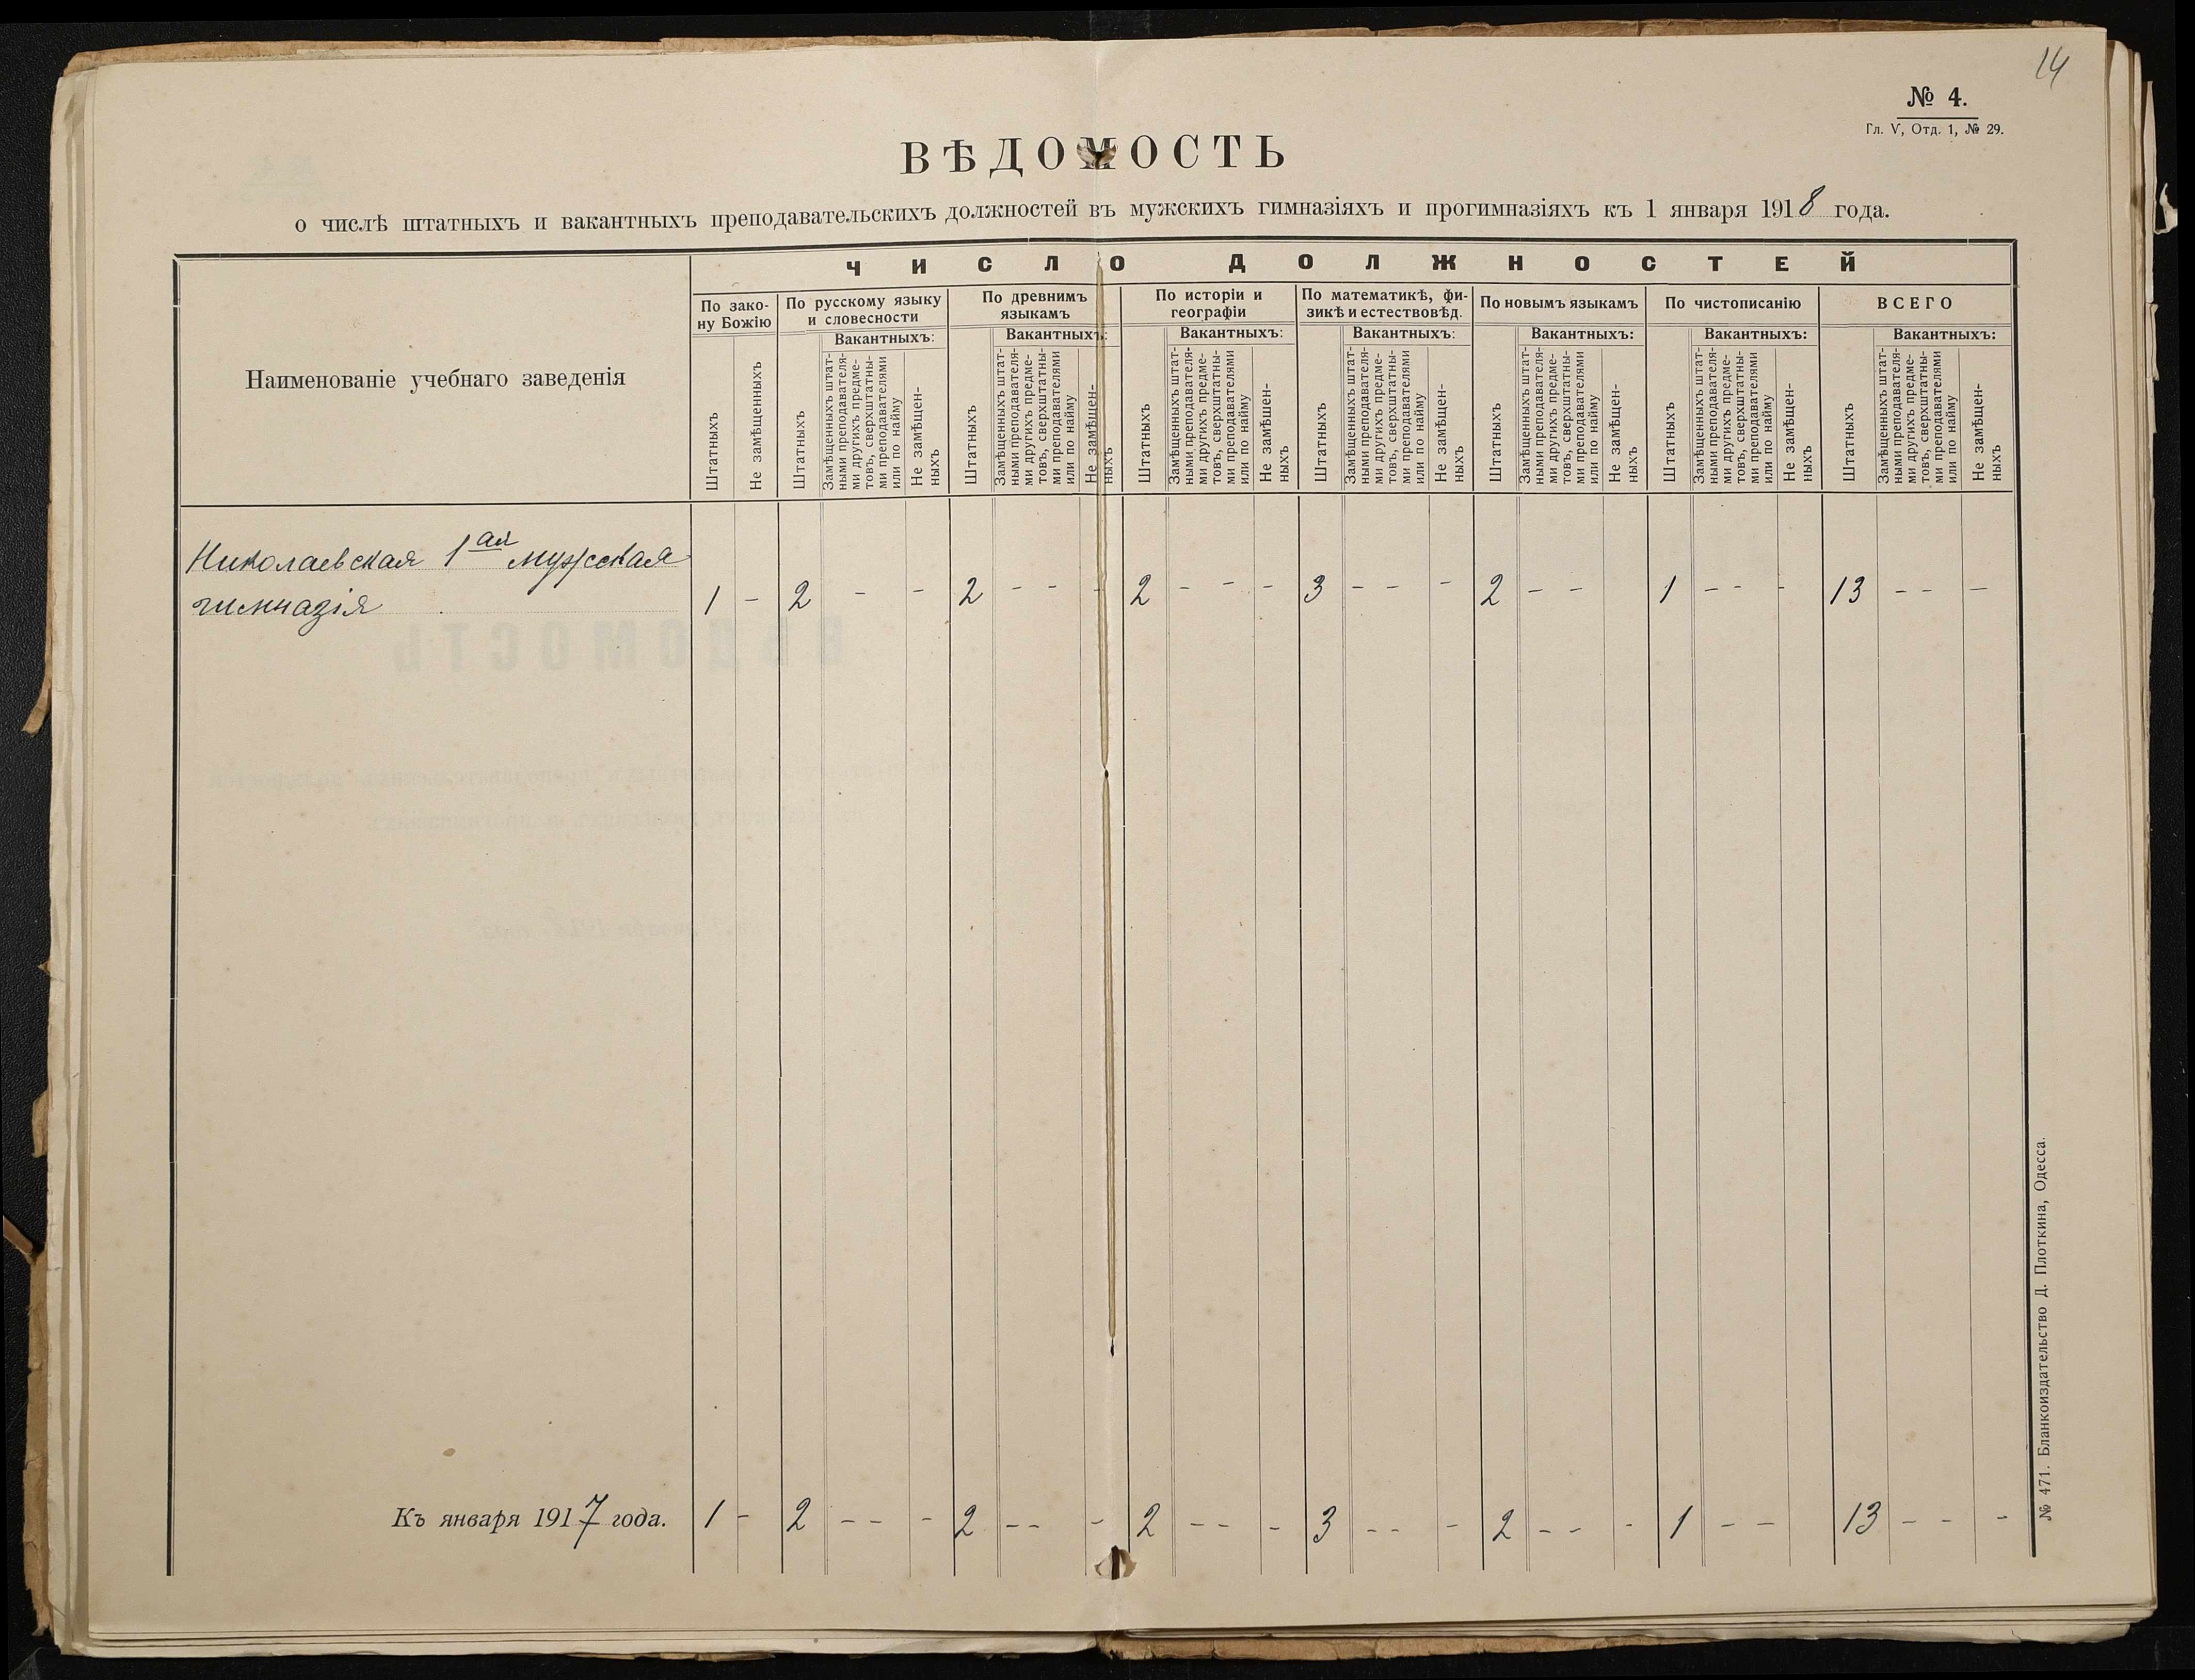 14
№ 4.
Гл. V, Отд. 1, № 29.
ВѢДОМОСТЬ
о числѣ штатныхъ и вакантныхъ преподавательскихъ должностей въ мужскихъ гимназіяхъ и прогимназіяхъ къ 1 января 1918 года.
Наименованіе учебнаго заведенія
ЧИСЛО ДОЛЖНОСТЕЙ
По зако-
ну Божію
Штатныхъ
Не замѣщенныхъ
По русскому языку
и словесности
Штатныхъ
Вакантныхъ:
Замѣщенныхъ штат-
ными преподавателя-
ми другихъ предме-
товъ, сверхштатны-
ми преподавателями
или по найму
Не замѣщен-
ныхъ
По древнимъ
языкамъ
Штатныхъ
Вакантныхъ:
Замѣщенныхъ штат-
ными преподавателя-
ми другихъ предме-
товъ, сверхштатны-
ми преподавателями
или по найму
Не замѣщен-
ныхъ
По исторіи и
географіи
Штатныхъ
Вакантныхъ:
Замѣщенныхъ штат-
ными преподавателя-
ми другихъ предме-
товъ, сверхштатны-
ми преподавателями
или по найму
Не замѣщен-
ныхъ
По математикѣ, фи-
зикѣ и естествовѣд.
Штатныхъ
Вакантныхъ:
Замѣщенныхъ штат-
ными преподавателя-
ми другихъ предме-
товъ, сверхштатны-
ми преподавателями
или по найму
Не замѣщен-
ныхъ
По новымъ языкамъ
Штатныхъ
Вакантныхъ:
Замѣщенныхъ штат-
ными преподавателя-
ми другихъ предме-
товъ, сверхштатны-
ми преподавателями
или по найму
Не замѣщен-
ныхъ
По чистописанію
Штатныхъ
Вакантныхъ:
Замѣщенныхъ штат-
ными преподавателя-
ми другихъ предме-
товъ, сверхштатны-
ми преподавателями
или по найму
Не замѣщен-
ныхъ
ВСЕГО
Штатныхъ
Вакантныхъ:
Замѣщенныхъ штат-
ными преподавателя-
ми другихъ предме-
товъ, сверхштатны-
ми преподавателями
или по найму
Не замѣщен-
ныхъ
Николаевская 1ая мужская
гимназія 1 - 2 - - 2 - - - 2 - - - 3 - - - 2 - - 1 - - - 13 - - -
Къ января 1917 года. 1 - 2 - - - 2 - - - 2 - - - 3 - - - 2 - - - 1 - - 13 - - -
№ 471. Бланкоиздательство Д. Плоткина, Одесса.